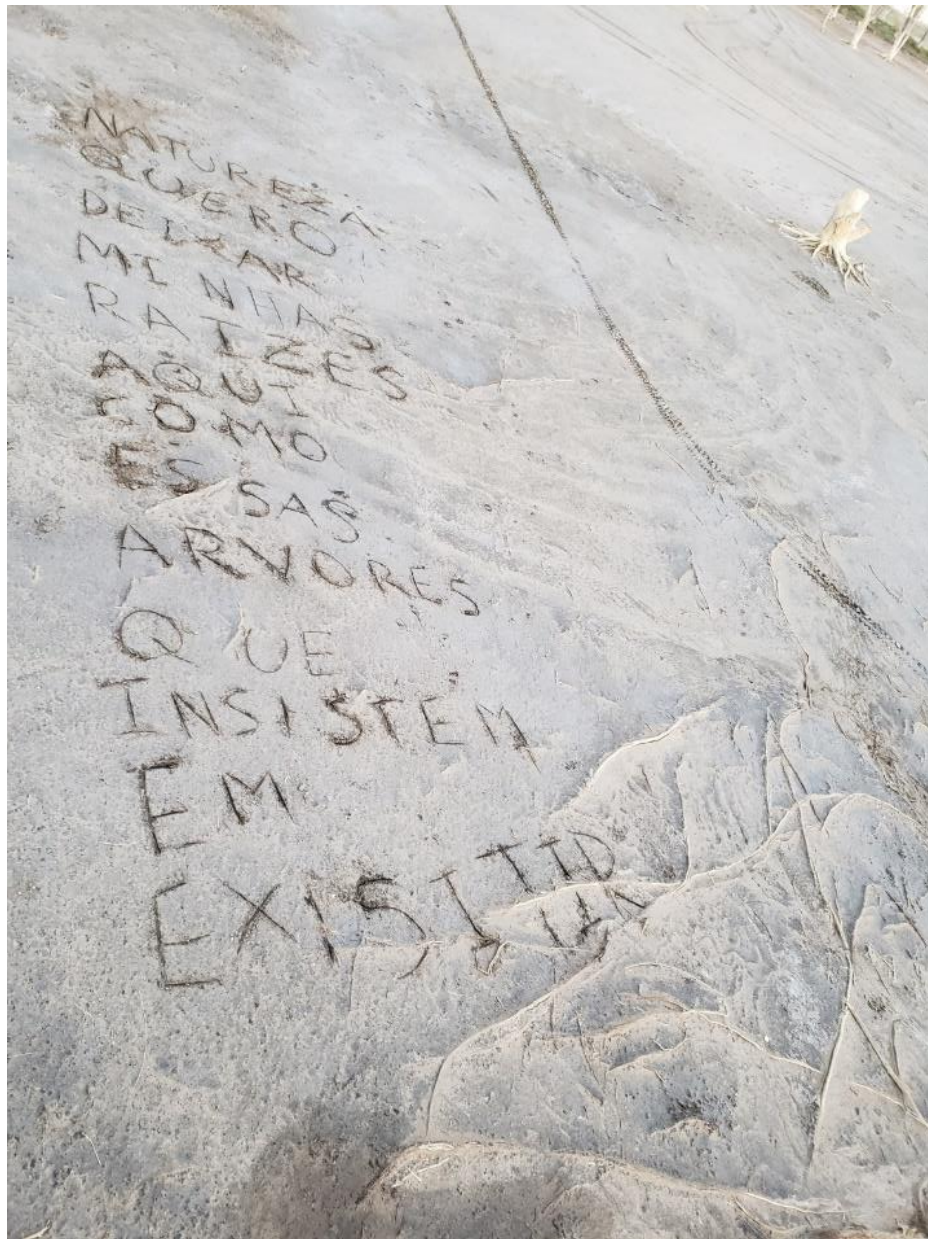 NATUREZA
QUERO
DEIXAR
MINHAS
RAIZES
AQUI
COMO
ESSAS
ARVORES
QUE
INSISTEM
EM
EXISTIR